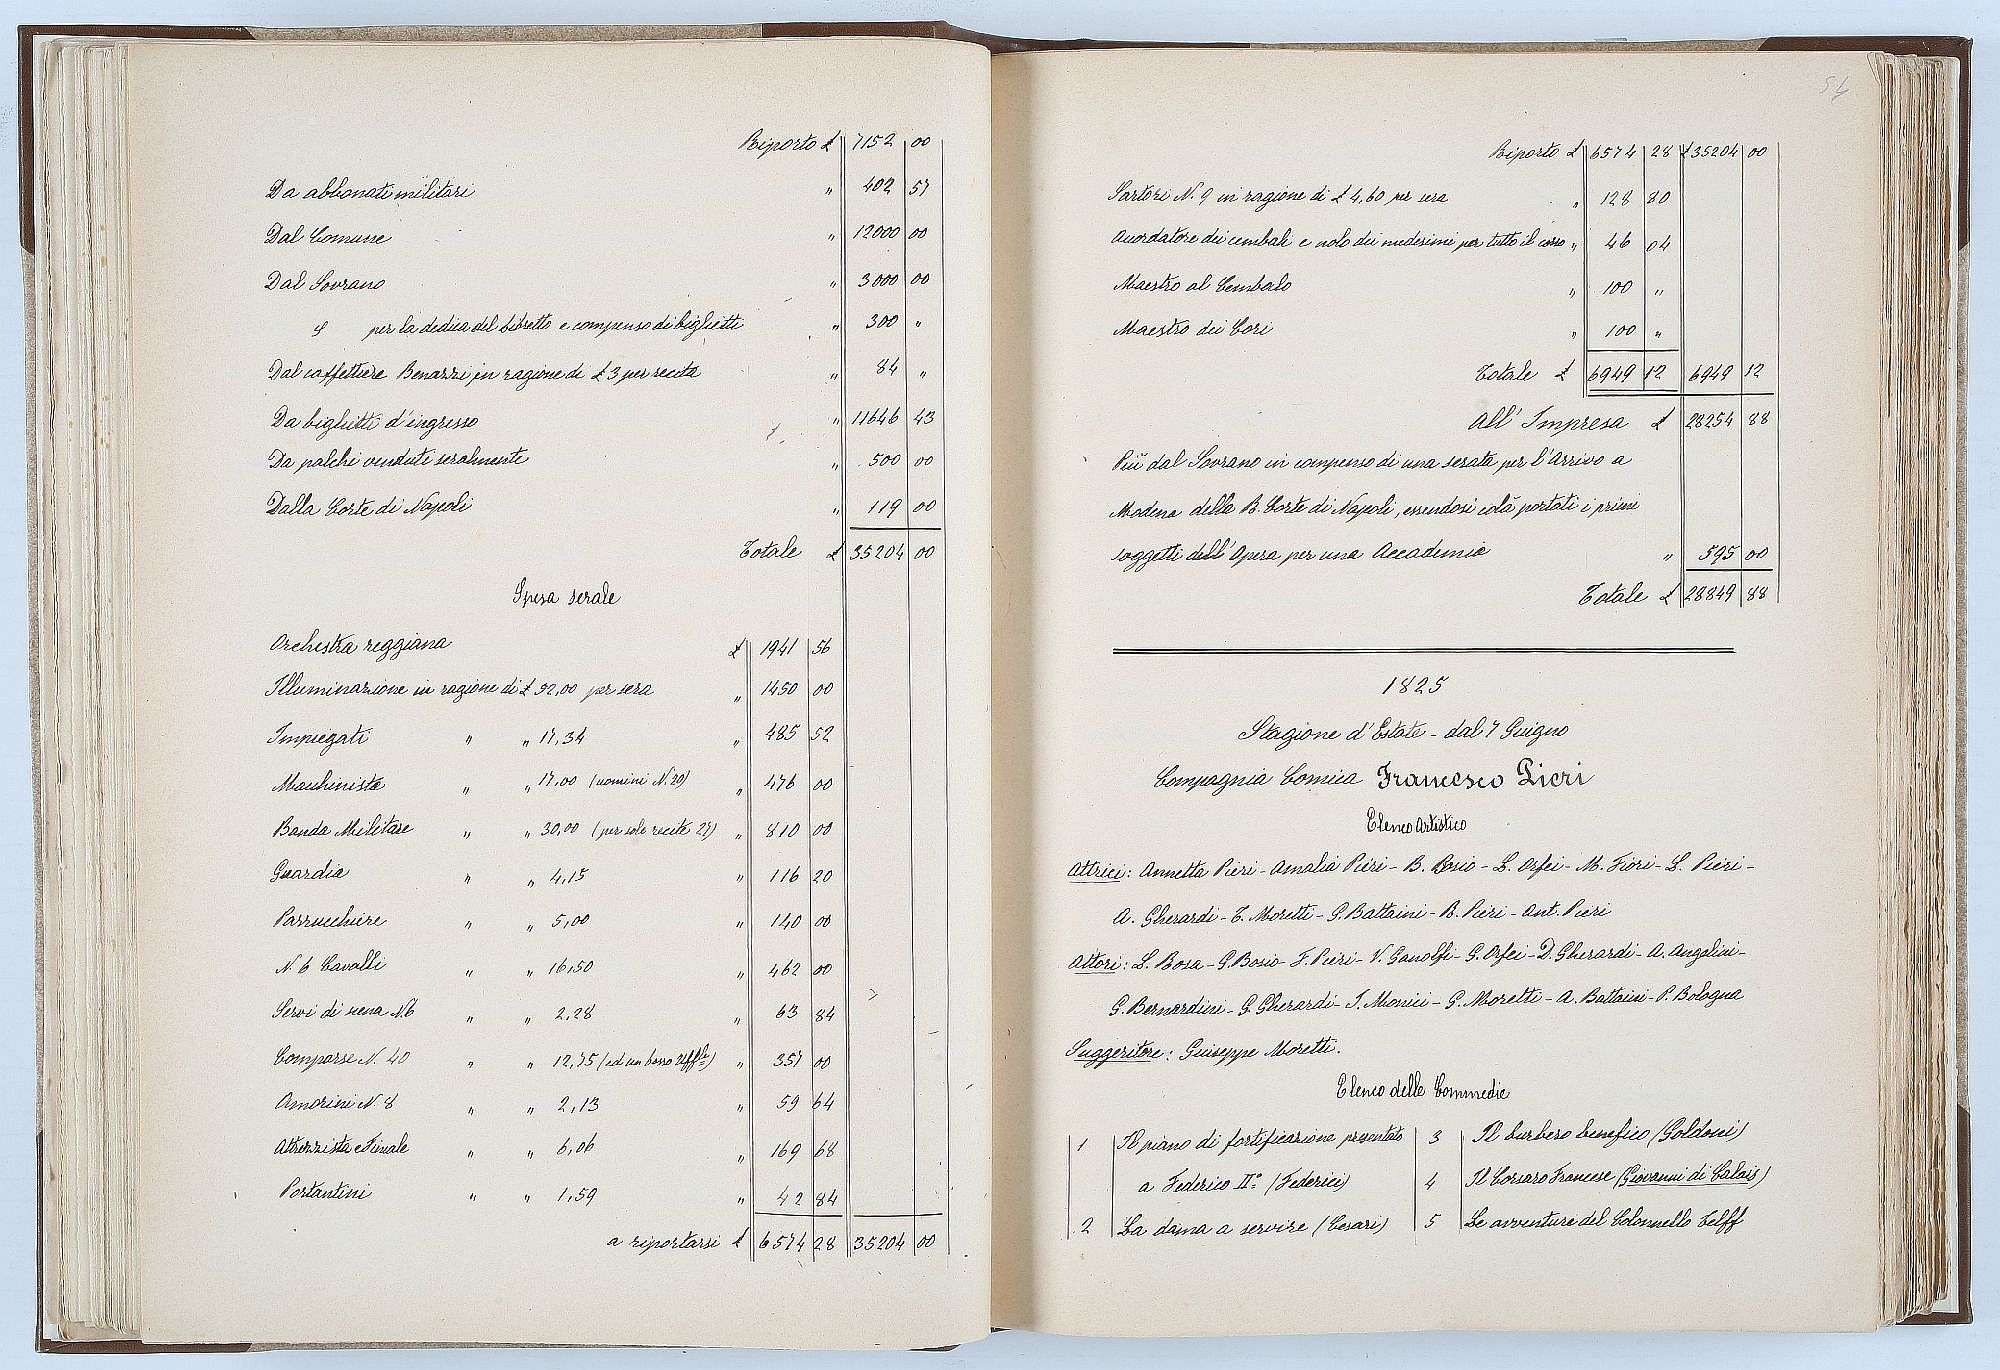 Riporto £ 7152 00
Da abbonati militari " 402 57
Dal Comune " 12000 00
Dal Sovrano " 3000 00
" per la dedica del libretto e compenso di biglietti " 300 "
Dal caffettiere Benazzi in ragione di £ 3 per recita " 84 "
Da biglietti d'ingresso " 11646 43
Da palchi venduti seralmente " 500 00
Dalla Corte di Napoli " 119 00
Totale £ 35204 00
Spesa serale
Orchestra reggiana £ 1941 56
Illuminazione in ragione di £ 52,00 per sera " 1450 00
Impiegati " " 17,34 " 485 52
Macchinista " " 17,00 (uomini N. 20) " 476 00
Banda Militare " " 30,00 (per sole recite 27) " 810 00
Guardia " " 4,15 " 116 20
Parrucchiere " " 5,00 " 140 00
N. 6 Cavalli " " 16,50 " 462 00
Servi di scena N. 6 " " 2,28 " 63 84
Comparse N. 40 " " 12,75 (ed un basso " 357 00
Amorini N. 8 " " 2,13 " 59 64
Attrezzista e " " 6,06 " 169 68
Portantini " " 1,59 " 42 84
a riportarsi £ 6574 28 35204 00
54
Riporto £ 6574 28 £ 35204 00
Sartori N. 9 in ragione di £ 4,60 per sera " 128 80
Accordatore dei cembali e nolo dei medesimi per tutto il corso " 46 04
Maestro al Cembalo " 100 "
Maestro dei Cori " 100 "
Totale £ 6949 12 6949 12
All' Impresa £ 28254 88
Più dal Sovrano in compenso di una serata per l'Arrivo a
Modena della R. Corte di Napoli, essendosi colà portati i primi
soggetti dell'Opera per una Accademia " 595 00
Totale £ 28849 88
1825
Stagione d'Estate - dal 7 Giugno
Compagnia Comica Francesco Pieri
Elenco Artistico
Attrici: Annetta Pieri - Amalia Pieri - B. Bosio - L. Orfei - M. Fiori - L. Pieri -
A. Gherardi - T. Moretti - G. Battaini - R. Pieri - Ant. Pieri
Attori: L. Rosa - G. Bosio - F. Pieri - V. Ganolfi - G. Orfei - D. Gherardi - A. Angelini -
G. Bernardini - G. Gherardi - T. Monici - G. Moretti - A. Battaini - P. Bologna
Suggeritore: Guiseppe Moretti.
Elenco delle Commedie
1 Il piano di fortificazione presentato
a Federico IIº (Federici)
2 La dama a servire (Cesari)
3 Il burbero benefico (Goldoni)
4 Il Corsaro Francese (Giovanni di Calais)
5 Le avventure del Colonnello Telff